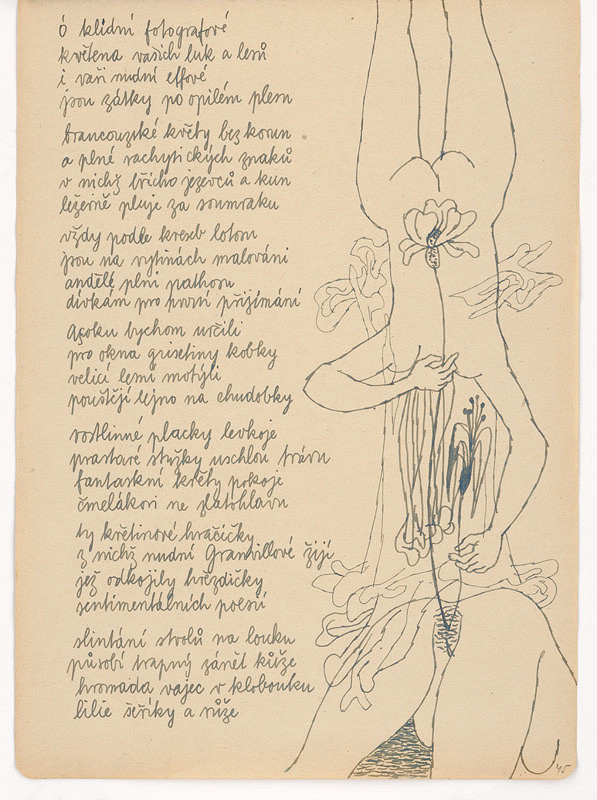 Ó klidní fotografové
květena vašich luk a lesů
i vaši nudní elfové
jsou zátky po opilém plesu
francouzské květy bez korun
a plné rachytických znaků
v nichž břicho jezevců a kun
ležerně pluje za soumraku
vždy podle kreseb lotosu
jsou na rytinách malováni
andělé plni pathosu
dívkám pro první přijímání
bychom určili
pro okna grisetiny kobky
velicí lemi motýli
pouštějí lejno na chudobky
rostlinné placky levkoje
prastaré stužky uschlou trávu
fantaskní květy pokoje
čmelákovi ne zlatohlavu
ty květinové hračičky
z nichž nudní Granvillové žijí
jež odkojily hvězdičky
sentimentálních poesií
slintání strolů na louku
působí trapný zánět kůže
hromada vajec v klobouku
lilie šeříky a růže
45